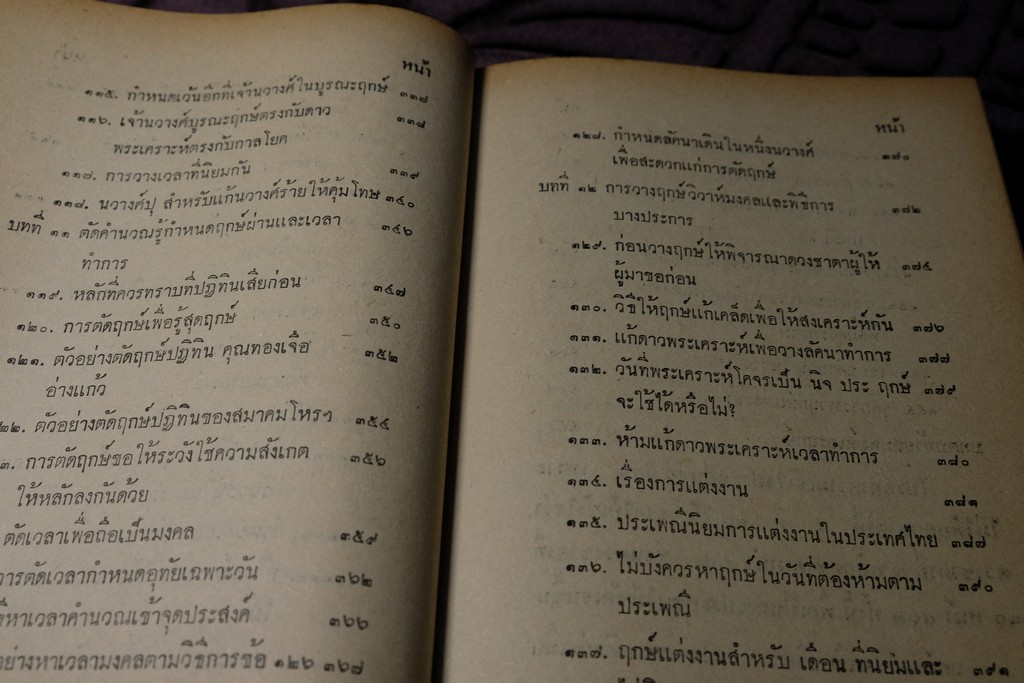 หน้า
๑๑๕. กำหนดเว้นอีกที่เจ้านวางศ์ในบูรณะฤกษ์ ๓๓๗
๑๑๖. เจ้านวางศ์บูรณะฤกษ์ตรงกับดาว ๓๓๘
พระเคราะห์ตรงกับกาลโยค
๑๑๗. การวางเวลาที่นิยมกัน ๓๓๙
๑๑๘. นวางศ์ปุ สำหรับแก้นวางศ์ร้ายให้คุ้มโทษ ๓๔๐
บทที่ ๑๑ ตัดคำนวณรู้กำหนดฤกษ์ผ่านและเวลา ๓๔๖
ทำการ
๑๑๙. หลักที่ควรทราบที่ปฏิทินเสียก่อน ๓๔๗
๑๒๐. การตัดฤกษ์เพื่อรู้สุดฤกษ์ ๓๕๐
๑๒๑. ตัวอย่างตัดฤกษ์ปฏิทิน คุณทองเจือ ๓๕๒
อ่างแก้ว
๒๒. ตัวอย่างตัดฤกษ์ปฏิทินของสมาคมโหรฯ ๓๕๔
๓. การตัดฤกษ์ขอให้ระวังใช้ความสังเกต ๓๕๖
ให้หลักลงกันด้วย
ตัดเวลาเพื่อถือเป็นมงคล ๓๕๙
การตัดเวลากำหนดอุทัยเฉพาะวัน ๓๖๒
หาเวลาคำนวณเข้าจุดประสงค์ ๓๖๖
อย่างหาเวลามงคลตามวิธีการข้อ ๑๒๖ ๓๖๗
หน้า
๑๒๘. กำหนดลัคนาเดินในหนึ่งนวางศ์ ๓๗๐
เพื่อสะดวกแก่การตัดฤกษ์
บทที่ ๑๒ การวางฤกษ์วิวาห์มงคลและพิธีการ ๓๗๒
บางประการ
๑๒๙. ก่อนวางฤกษ์ให้พิจารณาดวงชาตาผู้ให้ ๓๗๕
ผู้มาขอก่อน
๑๓๐. วิธีให้ฤกษ์แก้เคล็ดเพื่อให้สงเคราะห์กัน ๓๗๖
๑๓๑. แก้ดาวพระเคราะห์เพื่อวางลัคนาทำการ ๓๗๗
๑๓๒. วันที่พระเคราะห์โคจรเป็น นิจ ประ ฤกษ์ ๓๗๙
จะใช้ได้หรือไม่?
๑๓๓. ห้ามแก้ดาวพระเคราะห์เวลาทำการ ๓๘๐
๑๓๔. เรื่องการแต่งงาน ๓๘๑
๑๓๕. ประเพณีนิยมการแต่งงานในประเทศไทย ๓๘๗
๑๓๖. ไม่บังควรหาฤกษ์ในวันที่ต้องห้ามตาม ๓๙๐
ประเพณี
๑๓๗. ฤกษ์แต่งงานสำหรับ เดือน ที่นิยมและ ๓๙๑